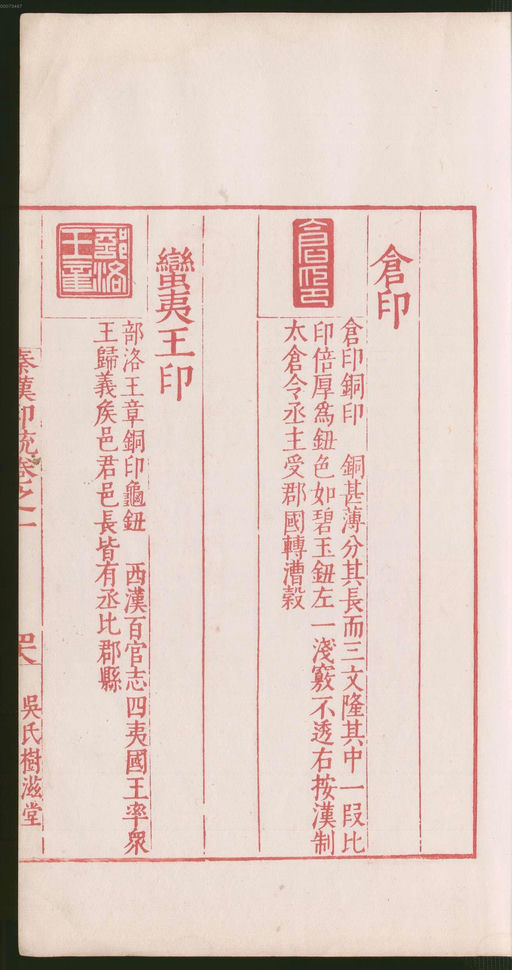 倉印
倉印
倉印銅印 銅甚薄分其長而三文隆其中一段比
印倍厚爲鈕色如碧玉鈕左一淺竅不透右按漢制
太倉令丞主受郡國轉漕穀
蠻夷王印
部洛
王章
部洛王章銅印龜鈕 西漢百官志四夷國王率衆
王歸義矦邑君邑長皆有丞比郡縣
秦漢印統卷之一
吳氏樹滋堂
00073487